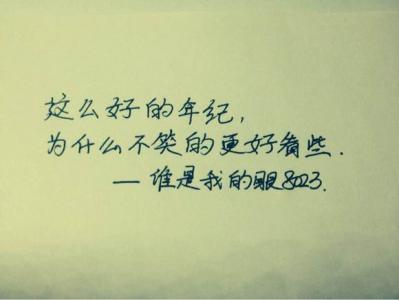 这么好的年纪，
为什么不笑的更好看些.
—谁是我的眼8023.